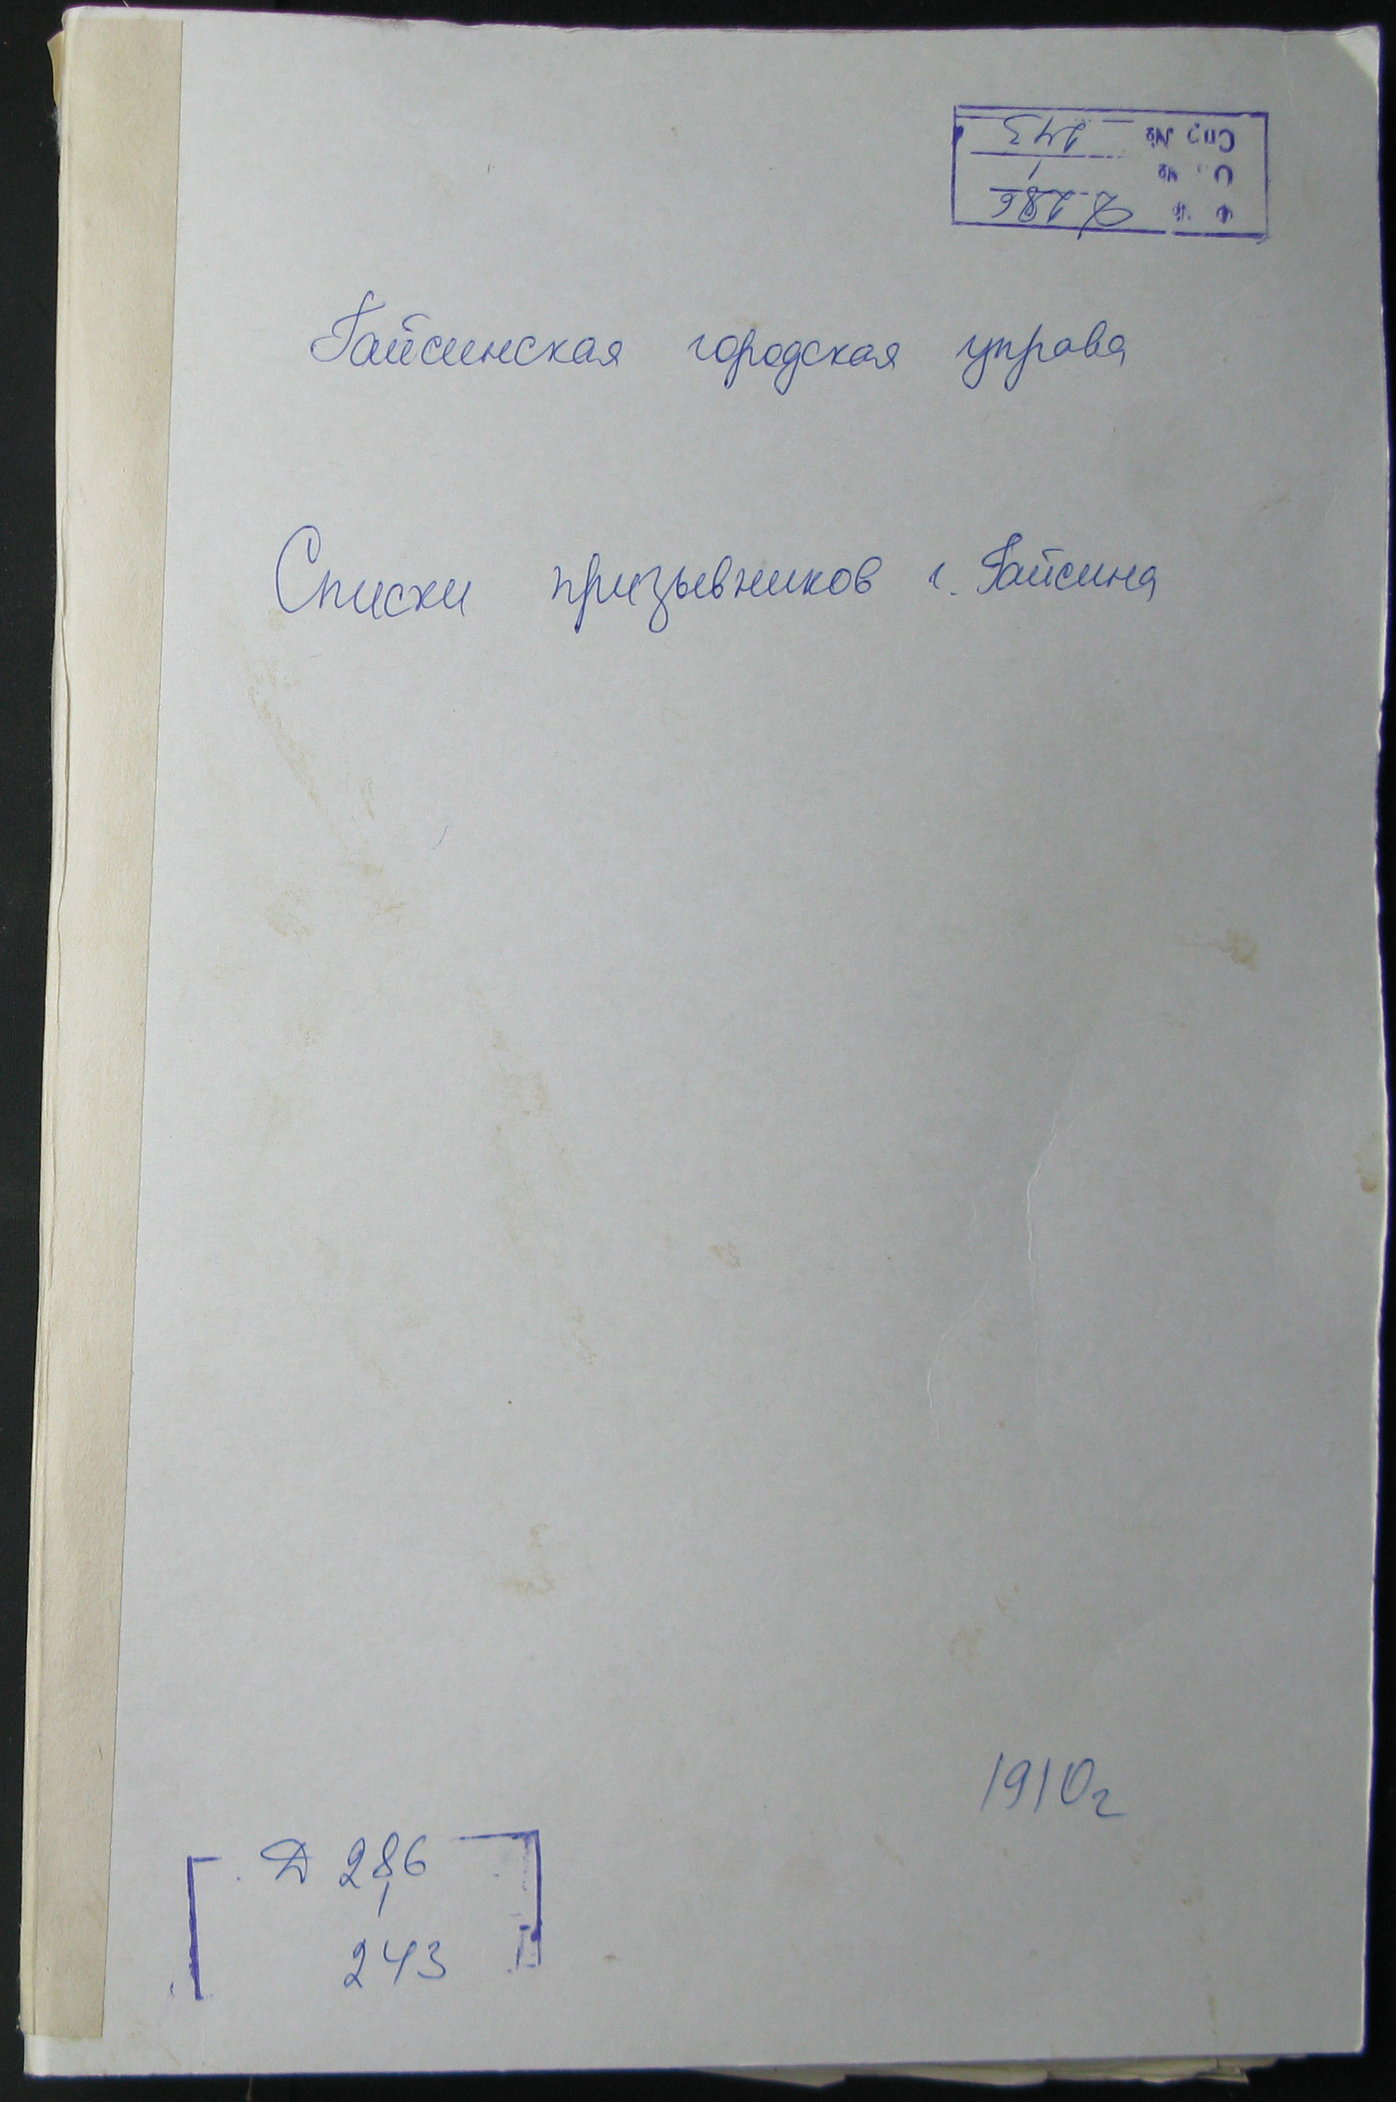 Ф № Д 286
С. № 1
Спр № 243
Гайсинская городская управа
Списки призывников г. Гайсина
1910г
Д 286
1
243